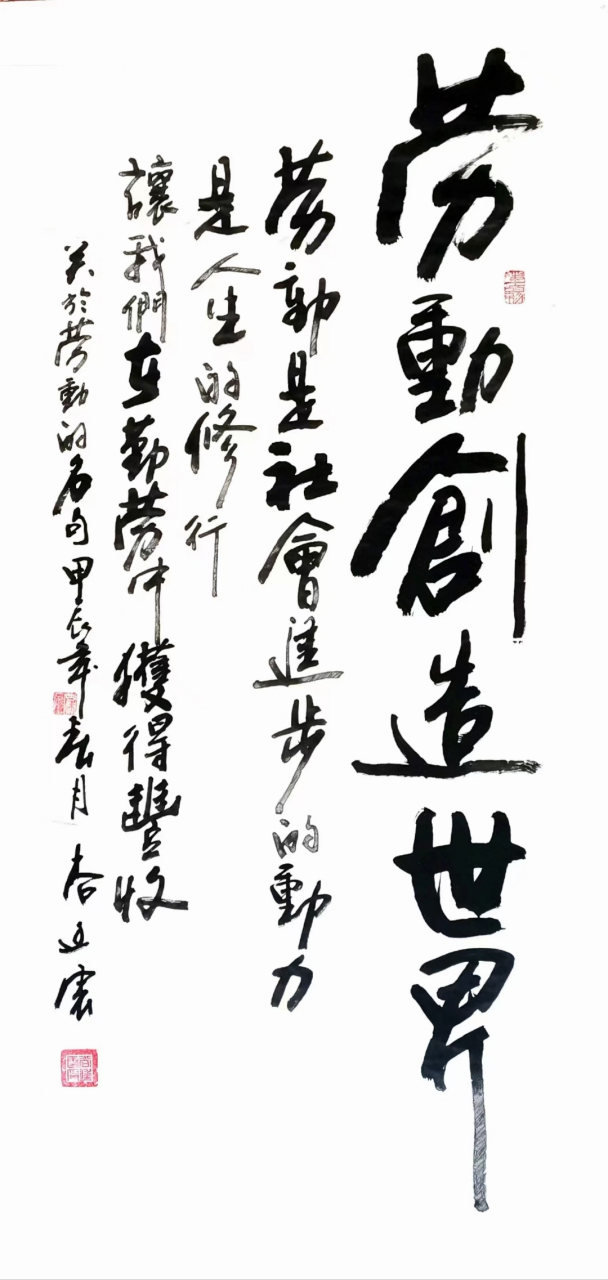 劳動創造世界
劳動是社會進步的動力
是人生的修行
讓我們在勤劳中獲得豐收
关於劳動的名句甲辰年春月